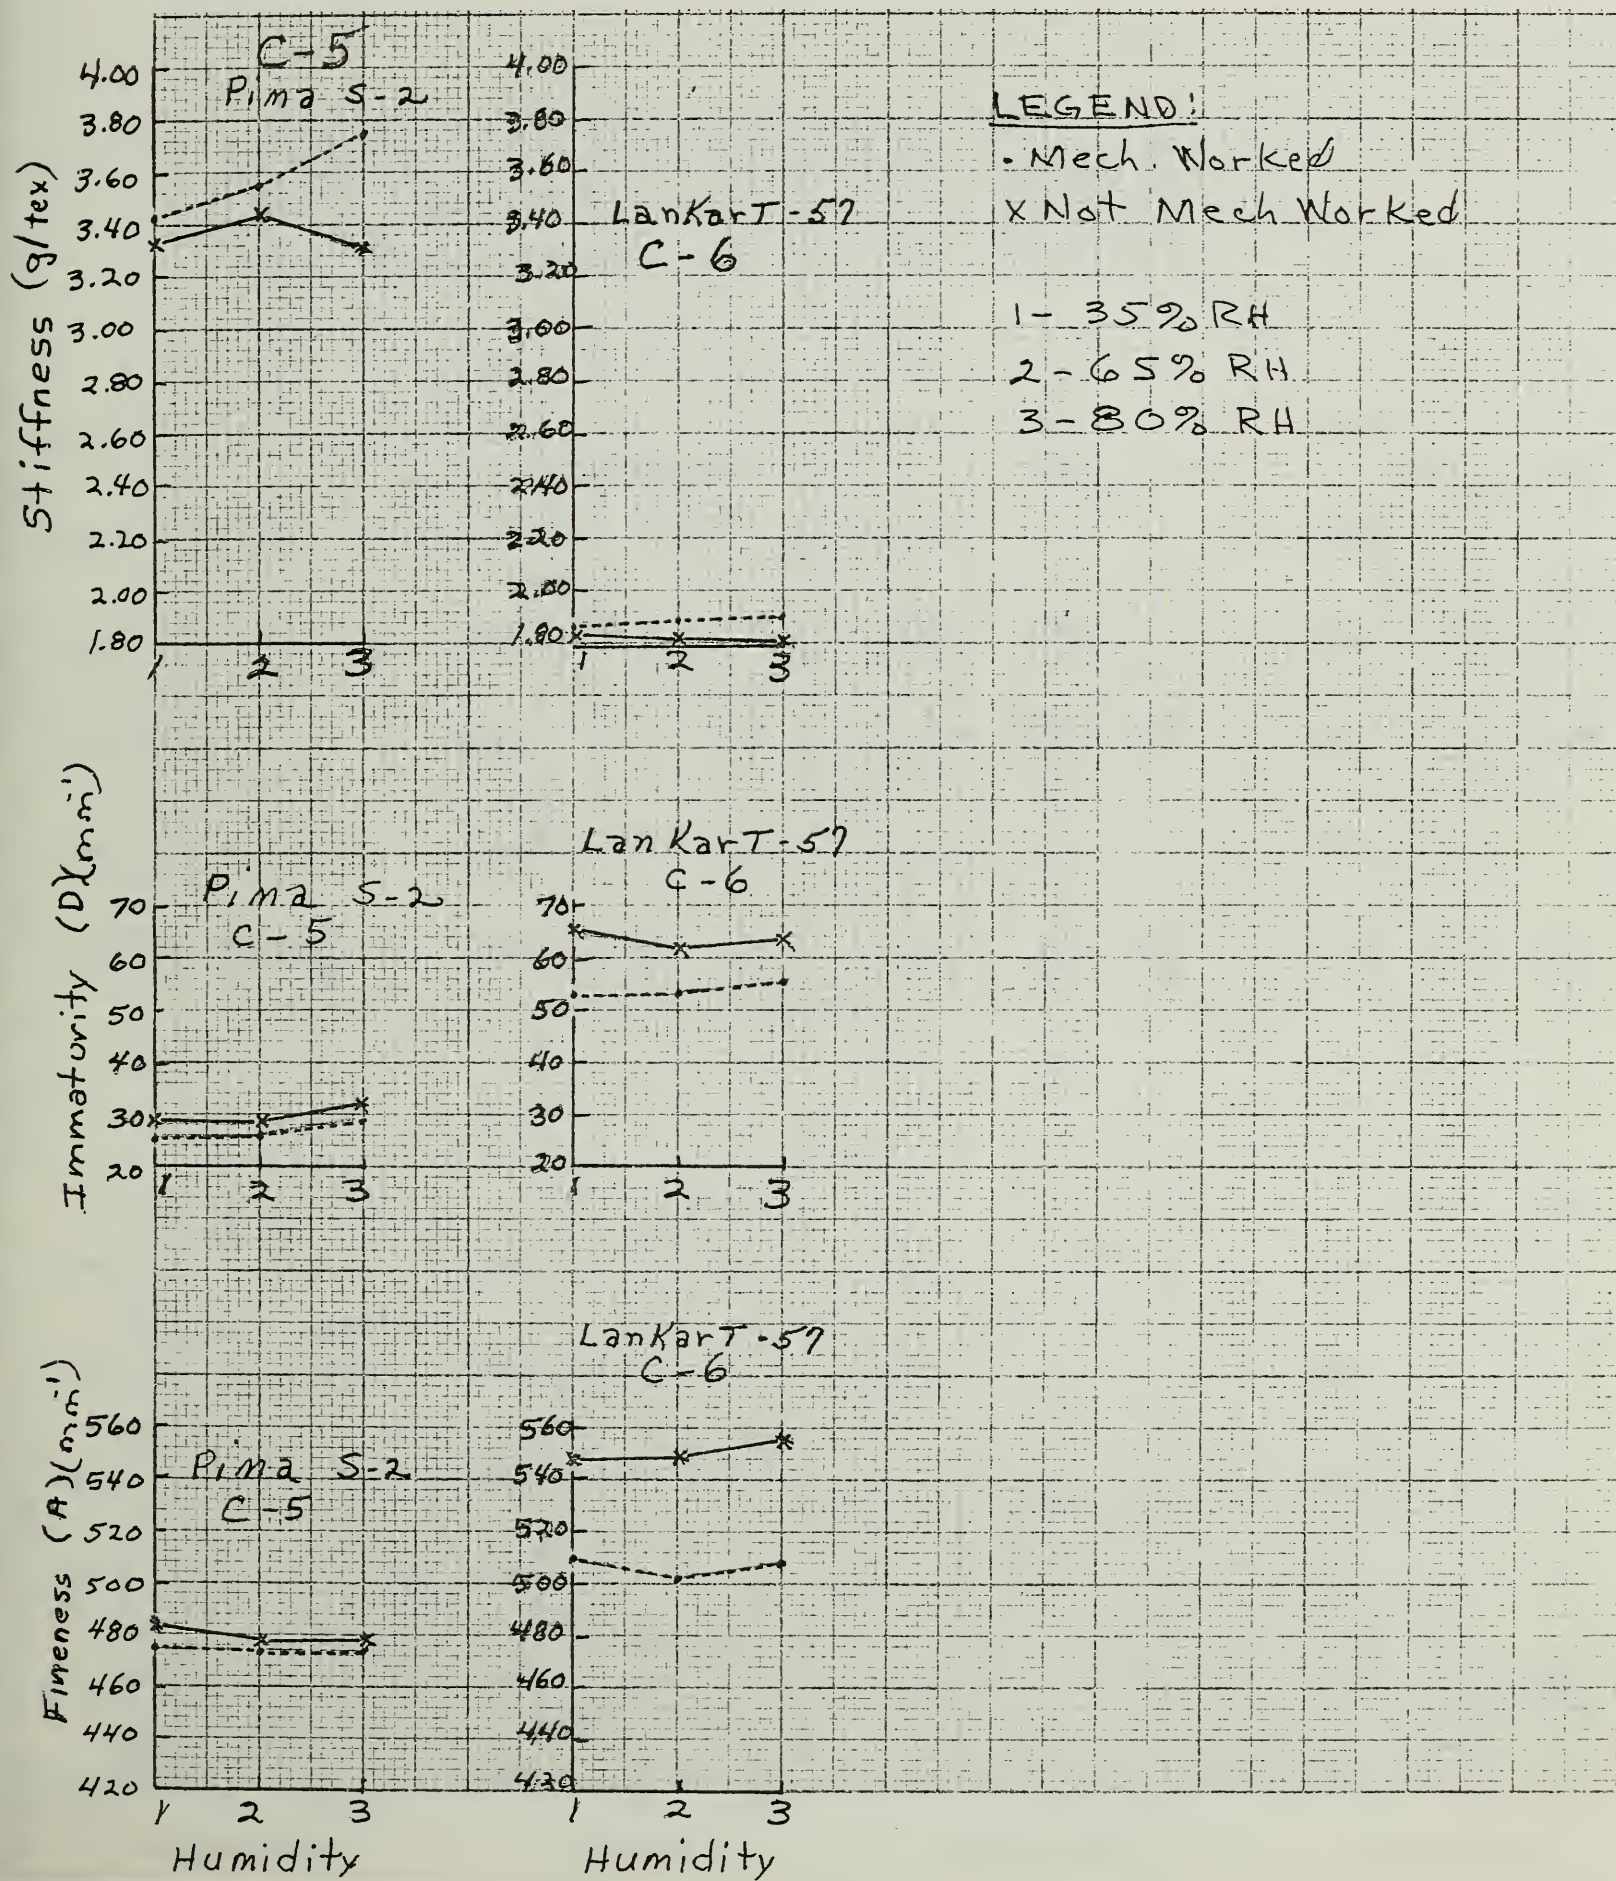 C-5
Pima S-2
4.00
3.80
3.60
3.40
3.20
3.00
2.80
2.60
2.40
2.20
2.00
1.80
1 2 3
Stiffness (g/tex)
4.00
3.80
3.60
3.40
3.20
3.00
2.80
2.60
2.40
2.20
2.00
1.80
1 2 3
LanKarT-57
C-6
LEGEND:
· Mech. Worked
x Not Mech Worked
1- 35% RH
2- 65% RH
3- 80% RH
Immaturity (D)(mm⁻¹)
Pima S-2
C-5
70
60
50
40
30
20
1 2 3
LanKarT-57
C-6
70
60
50
40
30
20
1 2 3
Fineness (A)(mm⁻¹)
Pima S-2
C-5
560
540
520
500
480
460
440
420
1 2 3
Humidity
LanKarT-57
C-6
560
540
520
500
480
460
440
420
1 2 3
Humidity